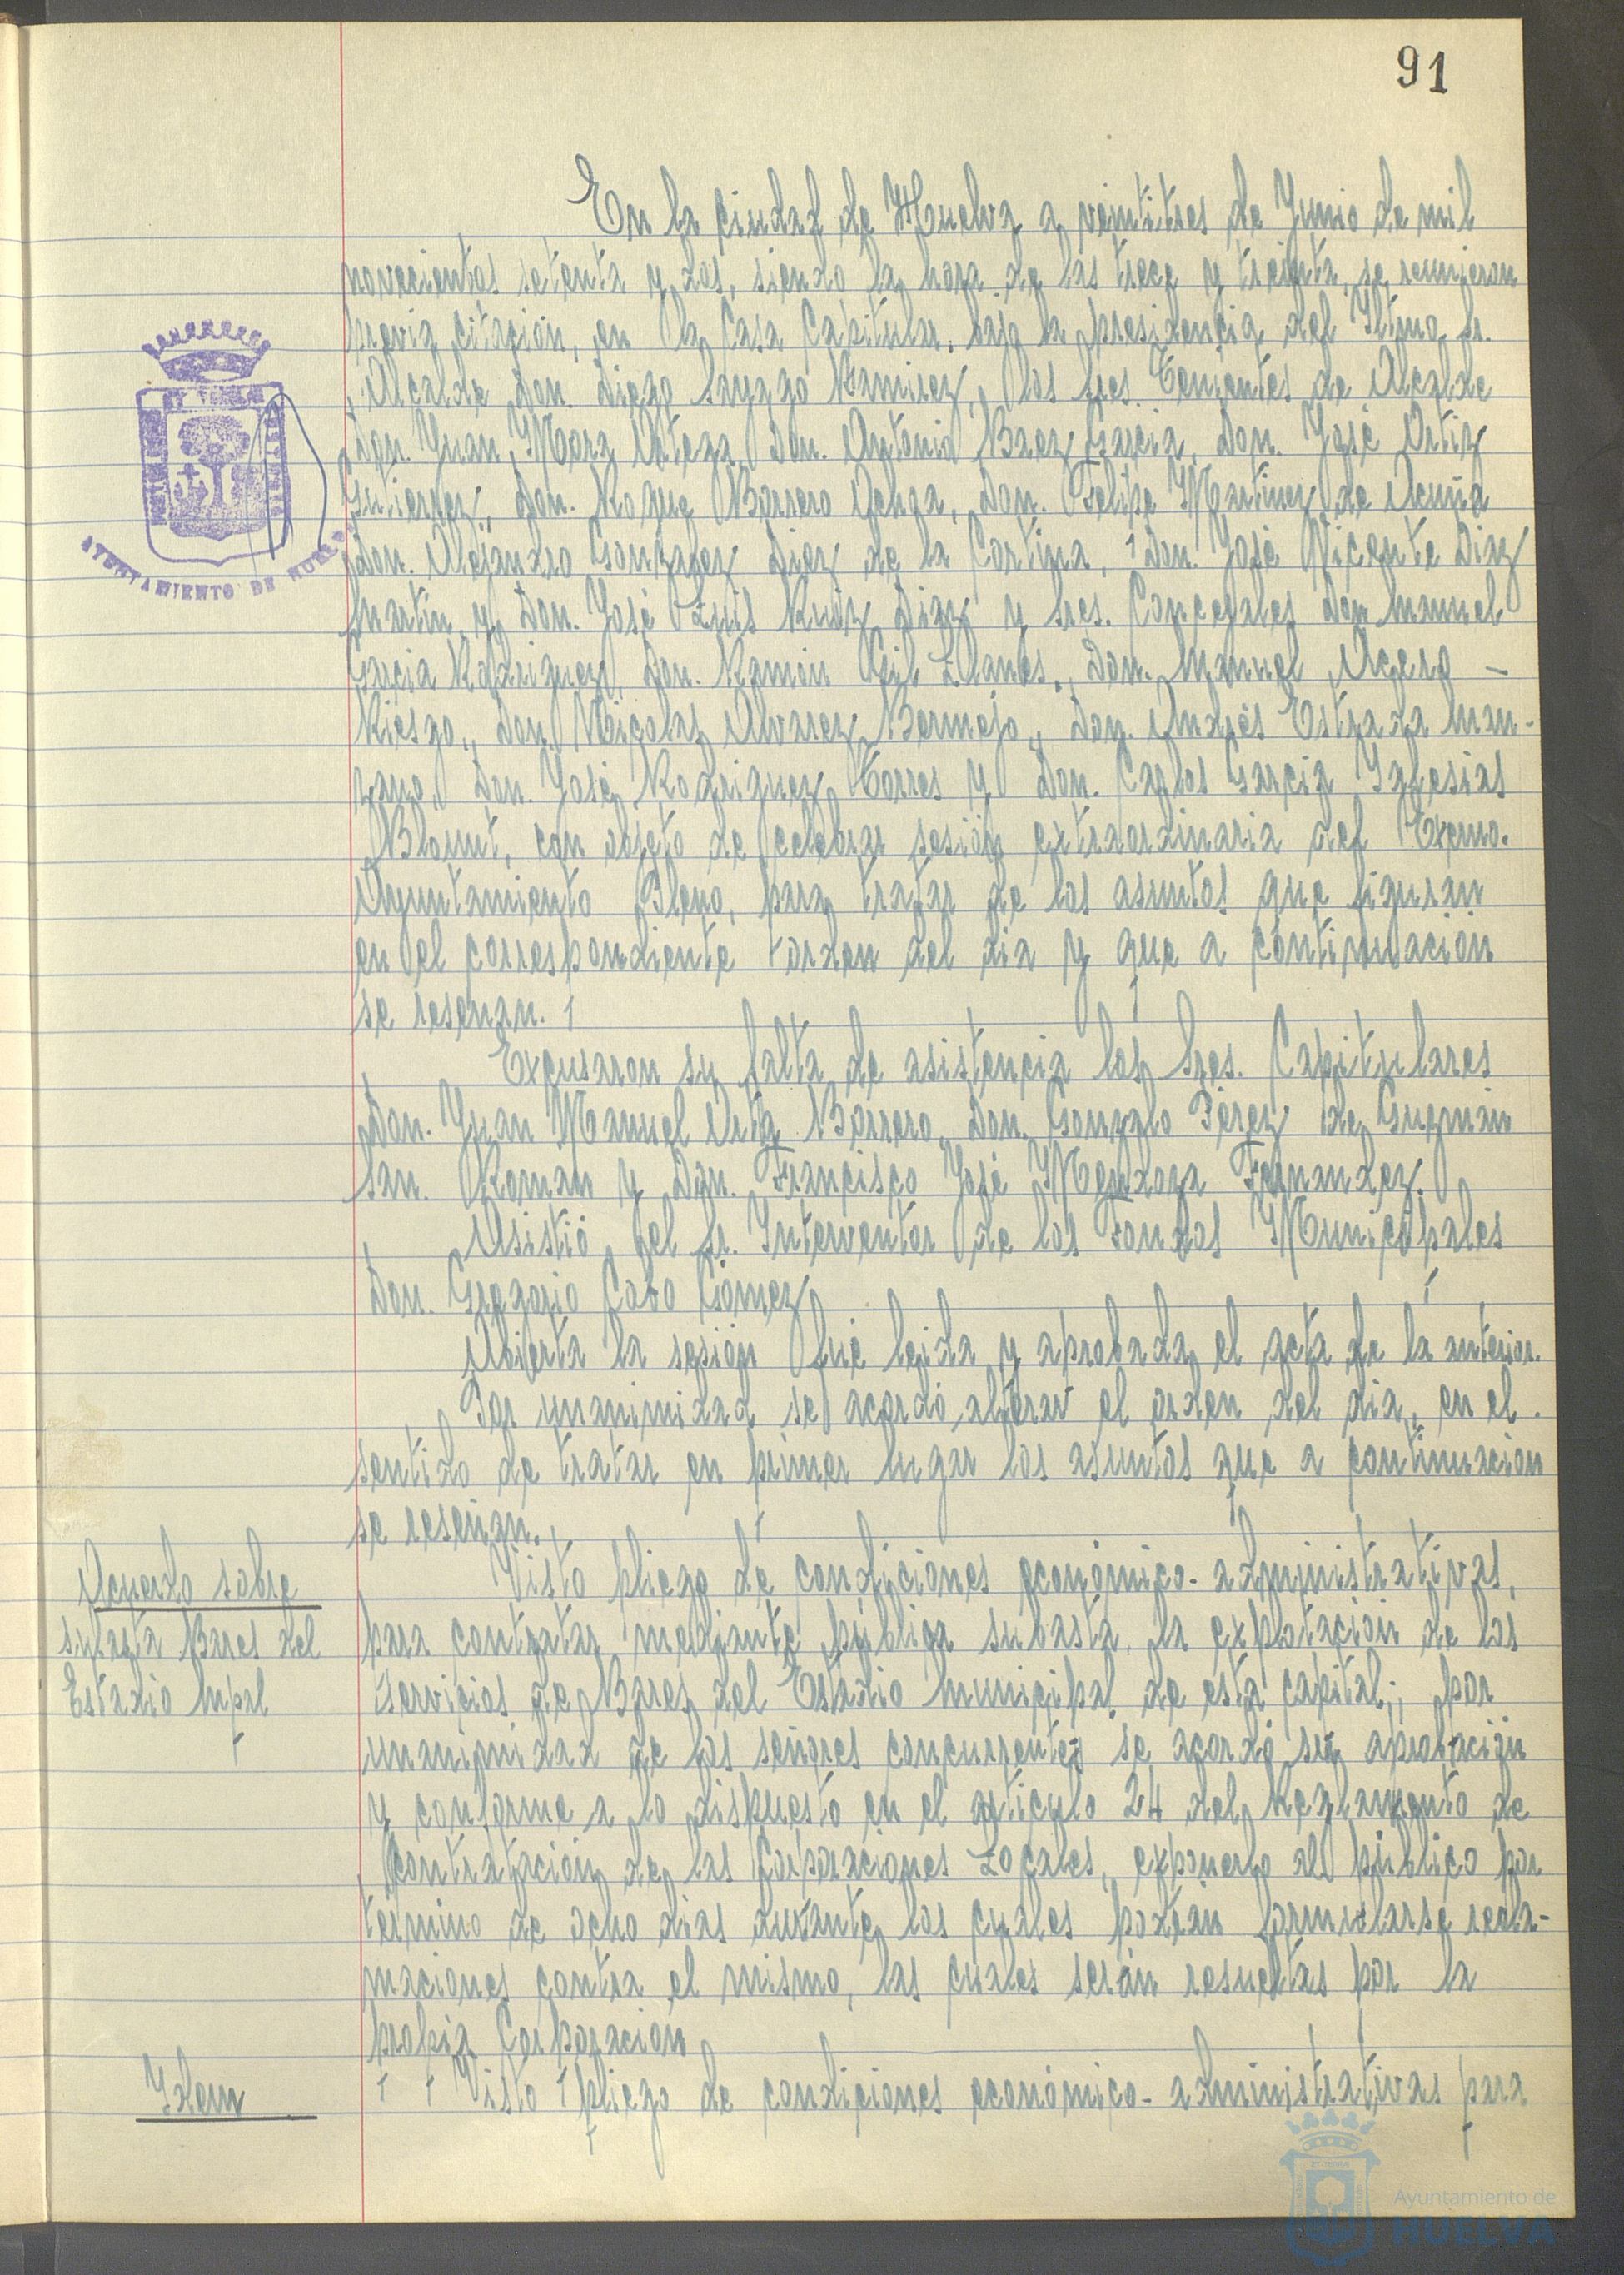 91
En la ciudad de Huelva a veintitres de Junio de mil
novecientos setenta y dos, siendo la hora de las trece y treinta, se reunieron
previa citación, en la Casa Capitular, bajo la presidencia del Iltmo. Sr.
Alcalde Don Diego Sayago Ramirez, los Sres. Tenientes de Alcalde
Don. Juan Mora Ortega Don. Antonio Baez Garcia, Don. José Ortiz
Gutierrez, Don. Roque Barrero Ochoa, Don. Felipe Martinez de Acuña
Don. Alejandro Gonzalez Diez de la Cortina, Don. José Vicente Diaz
Martin y Don. José Luis Ruiz Diaz y Sres. Concejales Don Manuel
Garcia Rodriguez, Don. Ramón Gil Llanes, Don. Manuel Acero -
Riesgo, Don. Nicolas Alvarez Bermejo, Don. Andrés Estrada Man-
zano, Don. José Rodriguez Torres y Don. Carlos Garcia Iglesias
Blount, con objeto de celebrar sesión extraordinaria del Excmo.
Ayuntamiento Pleno, para tratar de los asuntos que figuran
en el correspondiente orden del dia y que a continuación
se reseñan.
Excusaron su falta de asistencia los Sres. Capitulares
Don. Juan Manuel Orta Borrero, Don. Gonzalo Pérez de Guzmán
San Roman y Don. Francisco José Mendoza Fernandez.
Asistió el Sr. Interventor de los Fondos Municipales
Don. Gregorio Cabo Gómez
Abierta la sesión fué leida y aprobada el acta de la anterior.
Por unanimidad se acordó alterar el orden del dia, en el
sentido de tratar en primer lugar los asuntos que a continuación
se reseñan.
Acuerdo sobre
subasta Bares del
Estadio Mpal
Visto pliego de condiciones económico-administrativas,
para contratar mediante pública subasta, la explotación de los
servicios de Bares del Estadio Municipal de esta capital; por
unanimidad de los señores concurrentes se acordó su aprobación
y conforme a lo dispuesto en el articulo 24 del Reglamento de
Contratación de las Corporaciones Locales, exponerlo al público por
termino de ocho dias durante los cuales podrán formularse recla-
maciones contra el mismo, las cuales serán resueltas por la
propia Corporación
Idem
Visto pliego de condiciones económico-administrativas para
AYUNTAMIENTO DE HUELVA
Ayuntamiento de
HUELVA